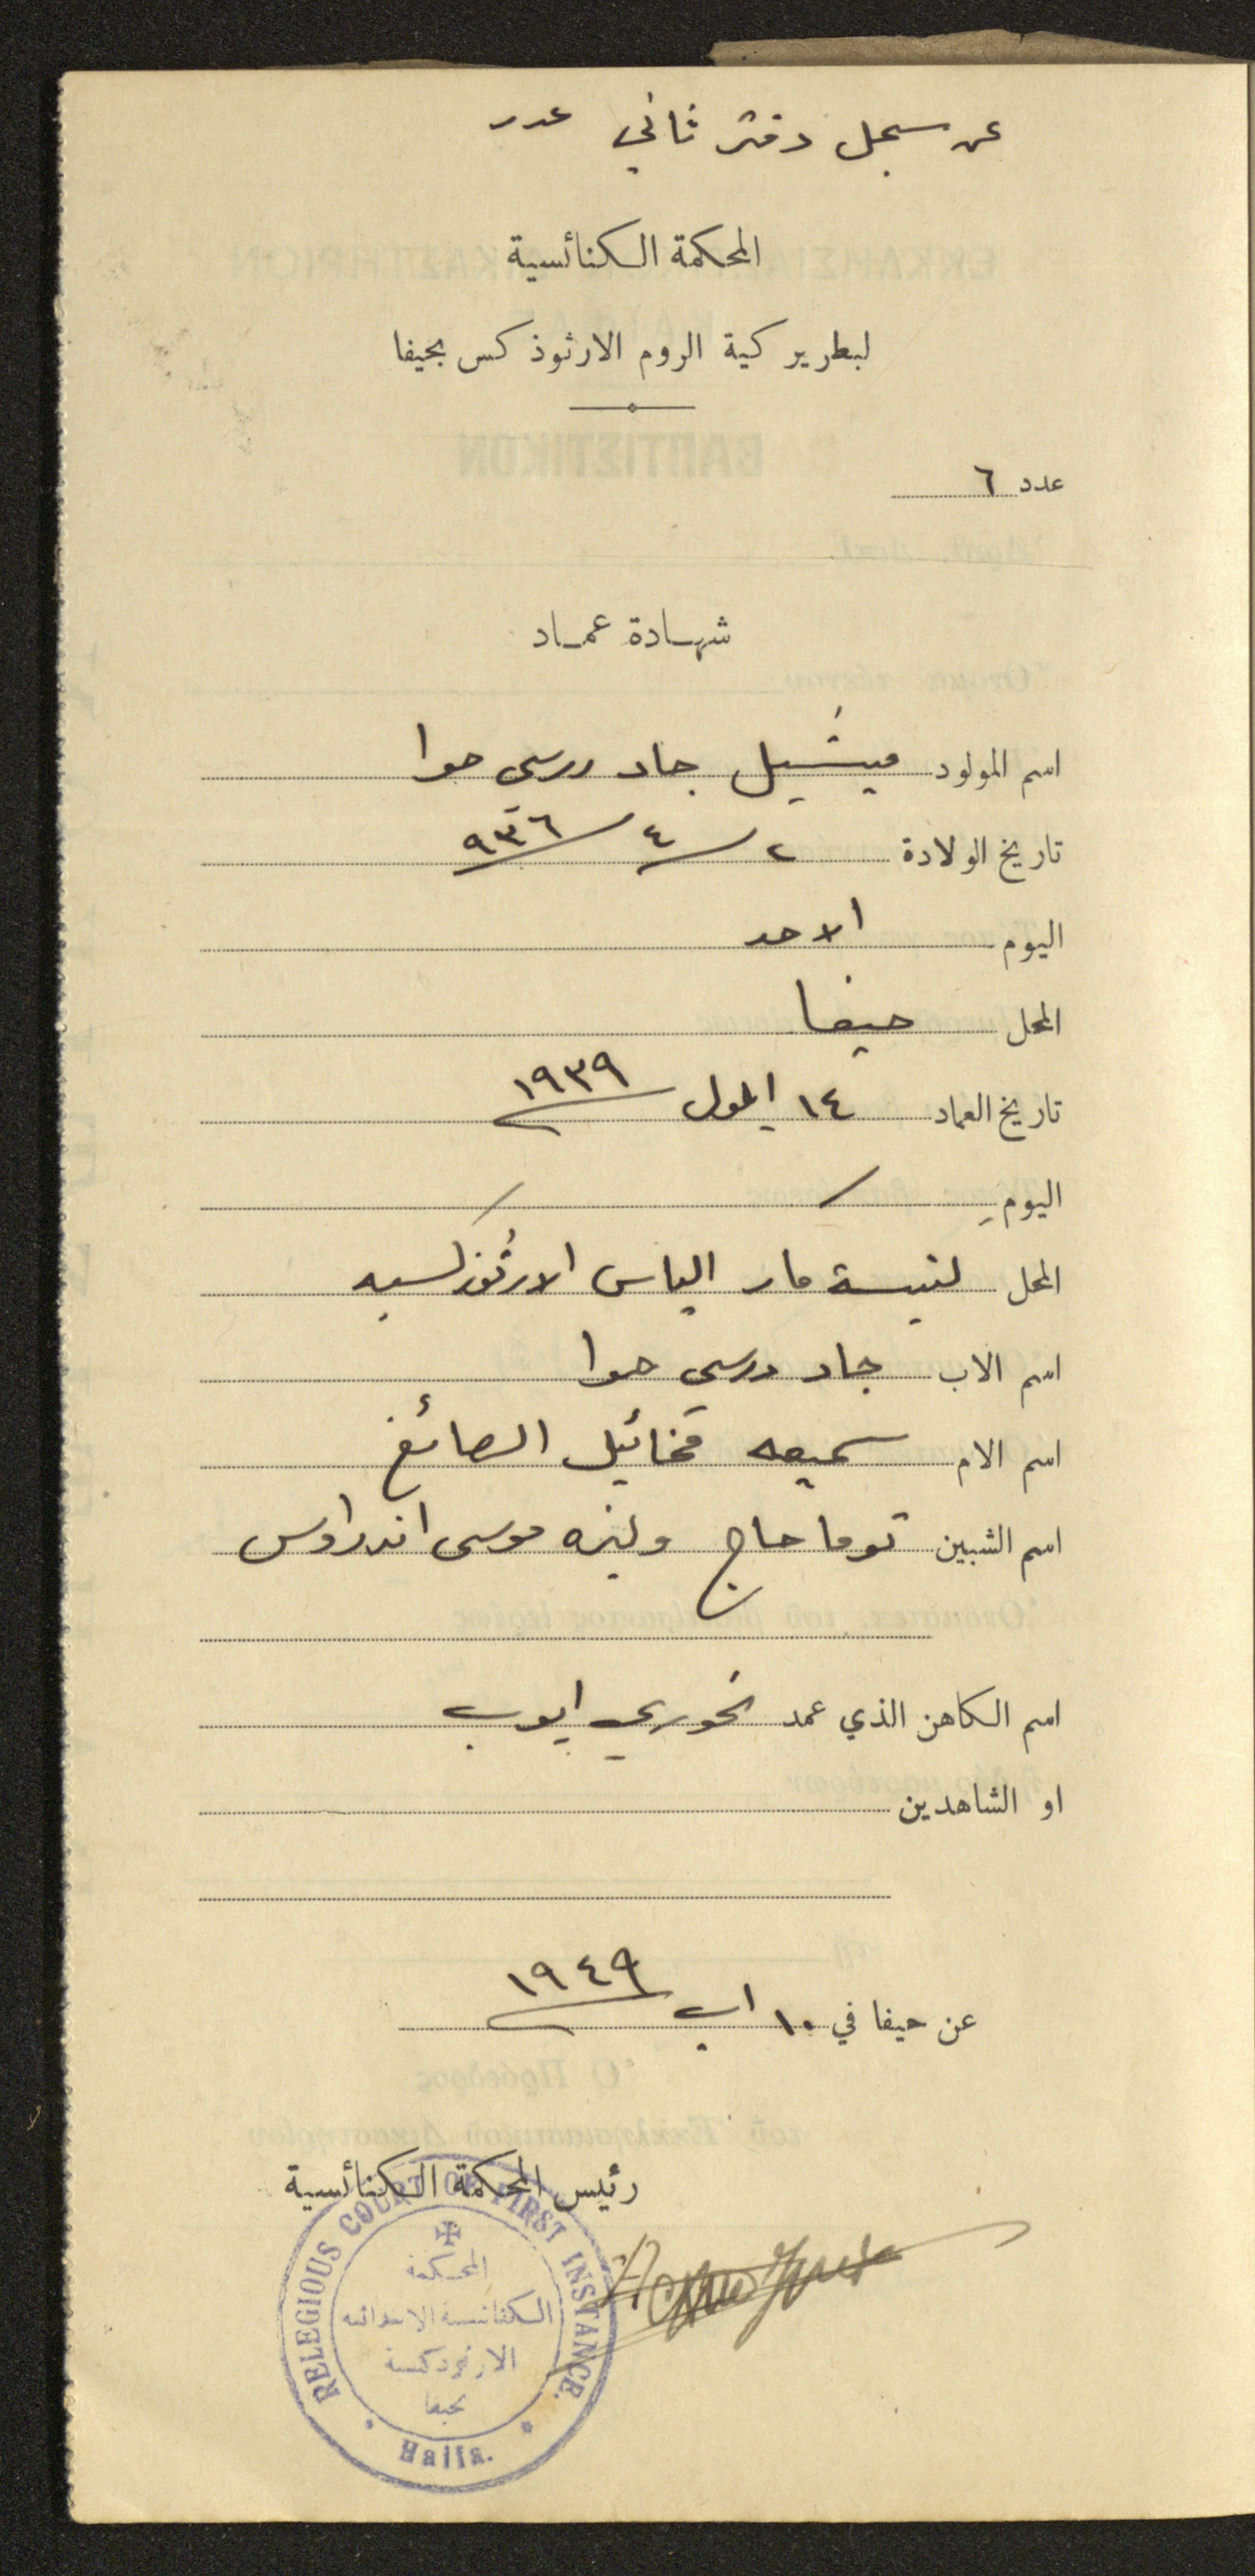 عن سجل دفتر ثاني عدد
المحكمة الكنائسية
لبطريركية الروم الارثوذكس بحيفا
عدد ٦
شهادة عماد
اسم المولود ميشيل جاد حوا
تاريخ الولادة ٢/٤/٩٣٦
اليوم الاحد
المحل حيفا
تاريخ العماد ١٤ ايلول ١٩٣٩
اليوم /  /
المحل كنيسة مار الياس الارثوذكسيه
اسم الاب جاد حوا
اسم الام سميعه مخائيل الصائغ
اسم الشبين توما حاج وليزه موسى اندراوس
اسم الكاهن الذي عمد خوري ايوب
او الشاهدين
عن حيفا في ١٠ اب ١٩٤٩
رئيس المحكمة الكنائسية
RELEGIOUS COURT OF FIRST INSTANCE.
المحكمة
الكنائسية الابتدائية
الارثوذكسية
بحيفا
Haifa.